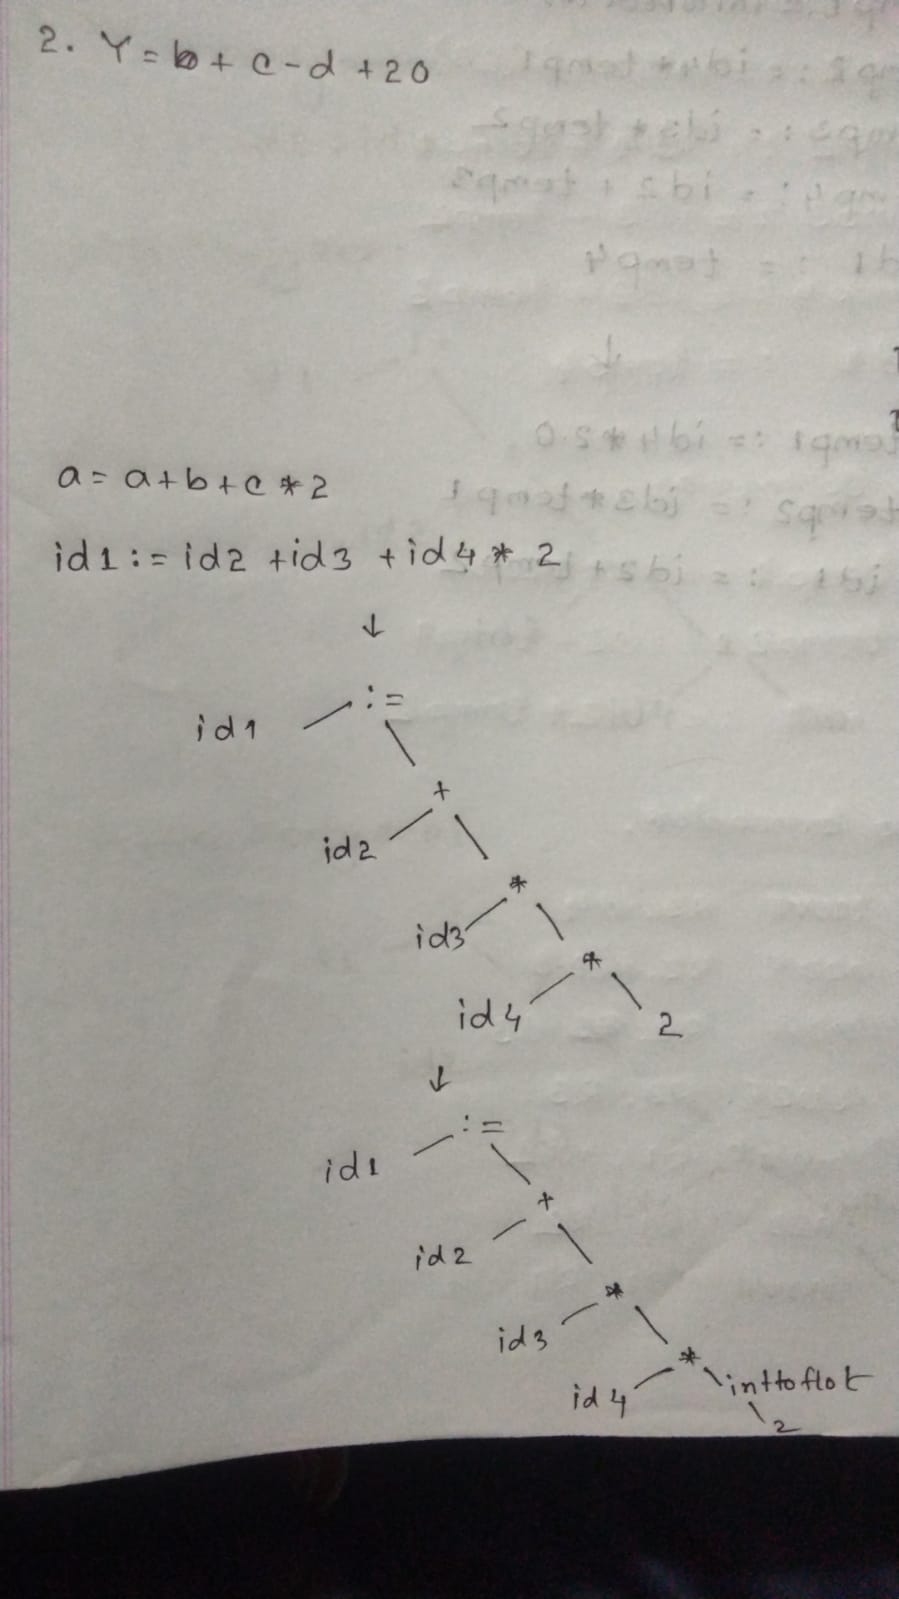 2. Y = b + c - d + 20
a = a + b + c * 2
id1 := id2 + id3 + id4 * 2
↓
:=
id1
+
id2
*
id3
*
id4
2
↓
:=
id1
+
id2
*
id3
*
inttoflot
id4
2